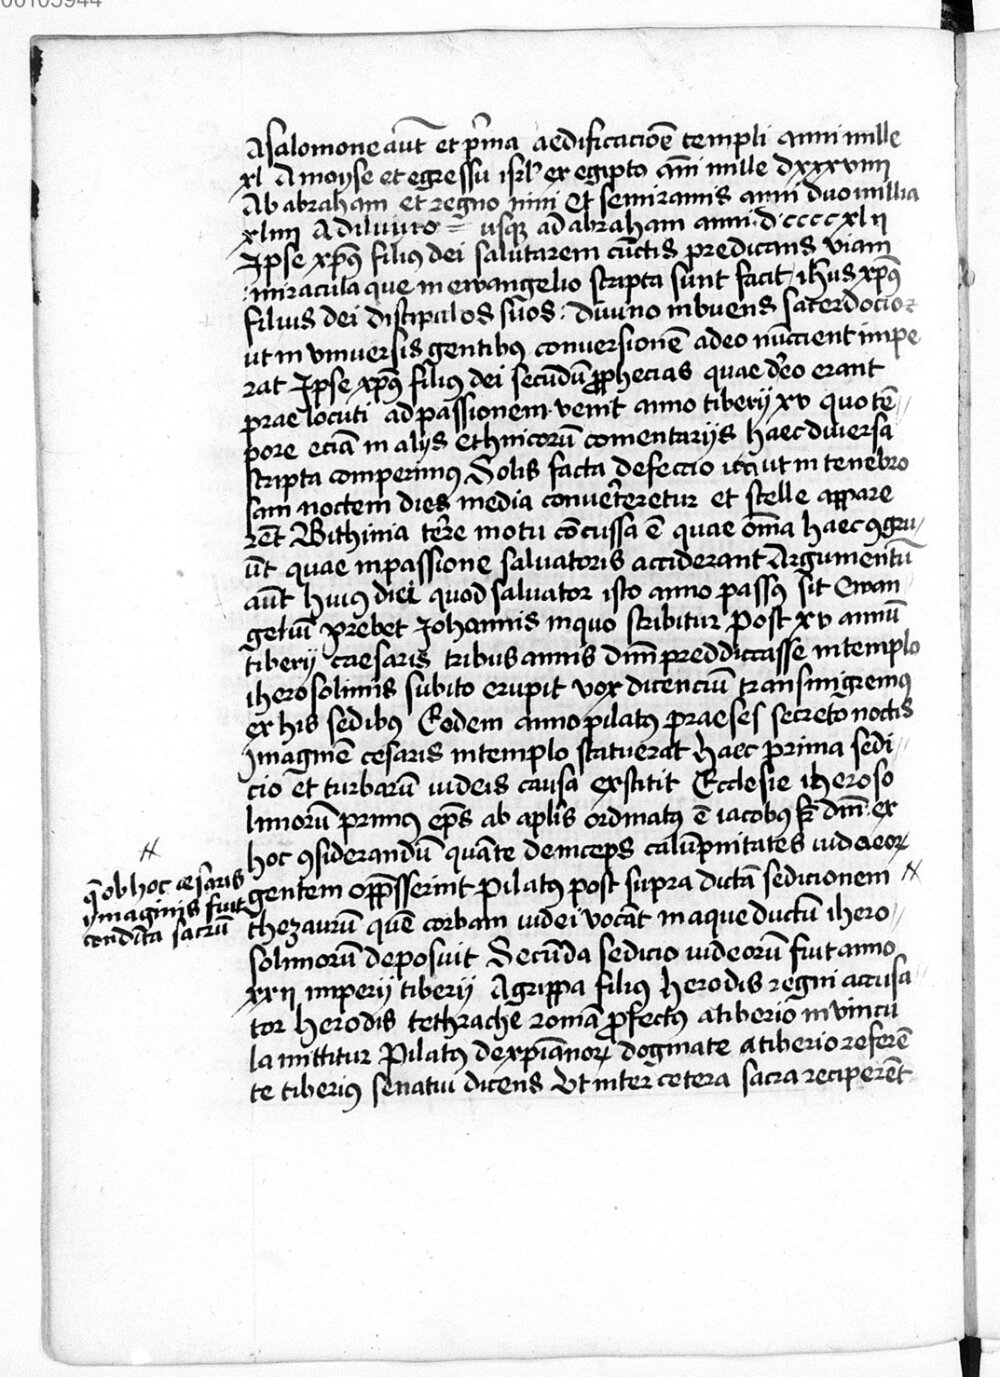 00105944
A salomone aut̄ et p̄ma aedificacioē templi anni mille
xl A moyse et egressu isrl' ex egipto am̄ mille dxxxviiii
Ab abraham et regno nini et semiramis anni duo millia
xliiii A diluuio = usqꝫ ad abraham anni d·cccc xl ii
Ipse xpꝰ filiꝰ dei salutarem cūctis predicans viam
miracula que in ewangelio scripta sunt facit ihus xpꝰ
filius dei discipulos suos diuino inbuens sacerdocio
ut in vniuersis gentibꝰ conuersionē adeo nūccient impe
rat Ipse xpꝰ filiꝰ dei secūdū ꝓphecias quae d'eo erant
prae locuti ad passionem venit anno tiberij xv quo tē
pore eciā in alijs ethnicorū comentarijs haec diuersa
scripta comperimꝰ Solis facta defeccio ita ut in tenebro
sam noctem dies media conuerteretur et stelle appare
rēt Bithinia t're motu cōcussa ē quae om̄ia haec ꝯgru
ūt quae in passione saluatoris acciderant Argumentū
aūt huius diei quod saluator isto anno passꝰ sit Ewan
geliū prebet Johannis in quo scribitur Post xv annū
tiberij caesaris tribus annis dnm̄ preddiccasse in templo
iherosolimis subito erupit vox dicenciū transmigremꝰ
ex his sedibꝰ Eodem anno pilatꝰ praeses secreto noctis
ymaginē cesaris in templo statuerat haec prima sedi
cio et turbarū iudeis causa exstitit Ecclesie iheroso
limorū primꝰ ep̄s ab aplīs ordinatꝰ ē iacobꝰ fr̄ dnī ex
hoc ꝯsiderandū quāte deinceps calūpnitates iudaeoꝝ
gentem opp̄sserint Pilatꝰ post supra dictā sedicionem
thezaurū quē corbam iudei vocāt in aque ductū ihero
solimorū deposuit Secūda sedicio iudeorū fuit anno
xxii imperij tiberij Agrippa filiꝰ herodis regni accusa
tor herodis tethrache romā ꝓfectꝰ a tiberio in vincu
la mittitur Pilatꝰ de xpianoꝝ dogmate a tiberio referē
te tiberiꝰ senatui dicens Vt inter cetera sacra reciperēt
q̄ ob hoc cesaris
ymaginis fuit
condita sacrū